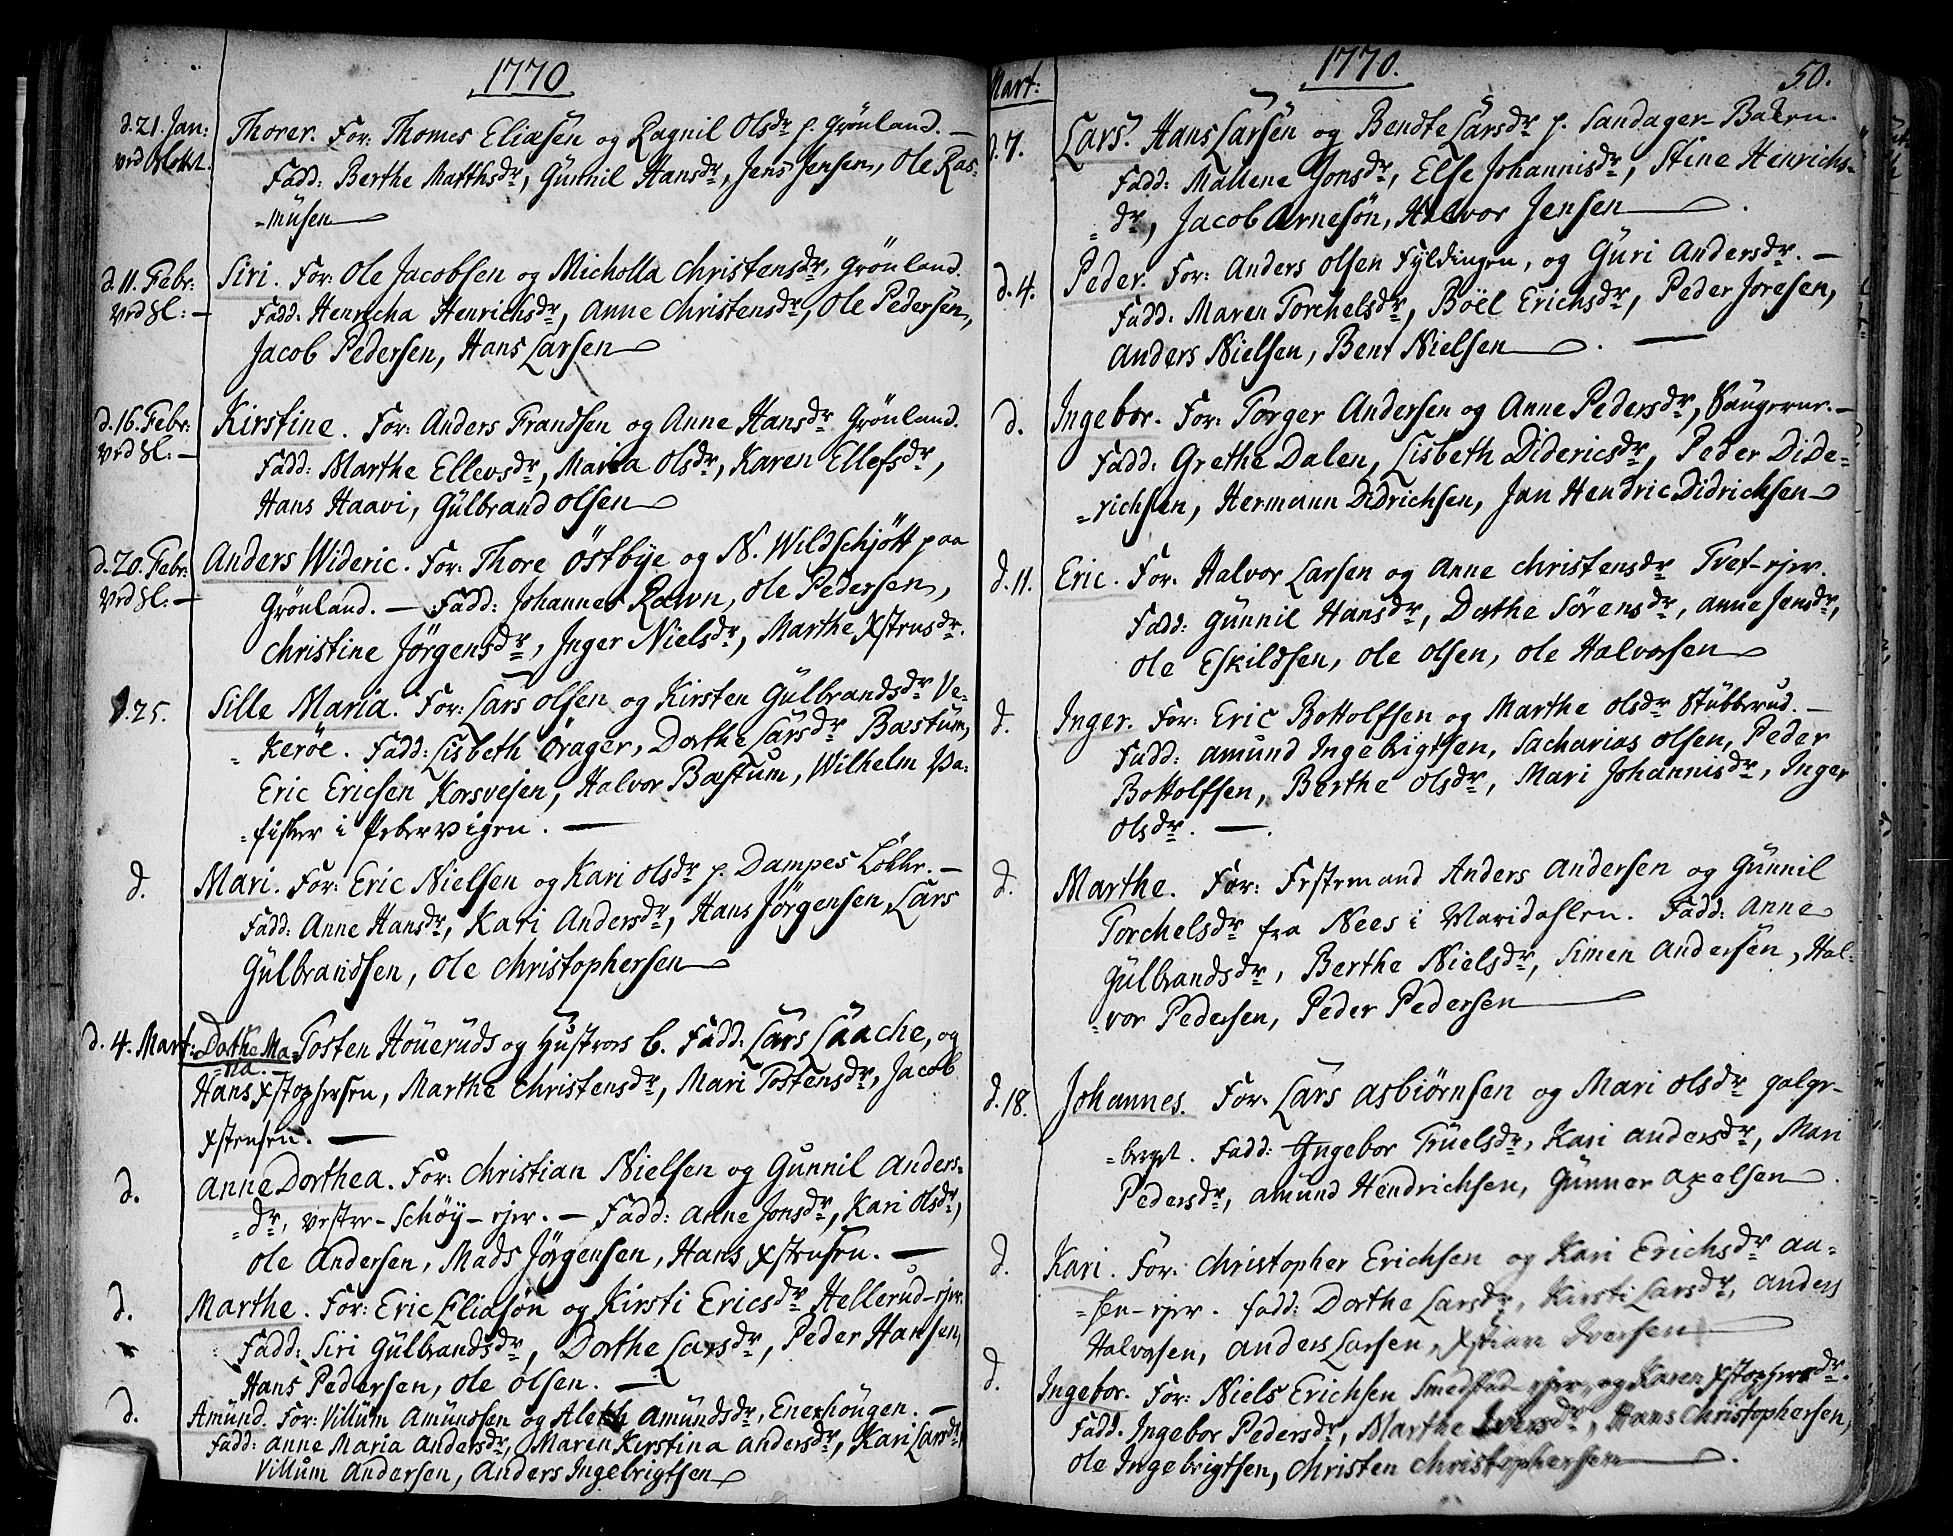 1770
d. 21. Jan: Thorer. For: Thomes Eliæsen og Ragnil Olsdr p. Grönland. —
Fadd: Berthe Matthsdr, Gunnil Hansdr, Jens Jensen, Ole Ras=
=musen
d. 11. Febr: Siri. For: Ole Jacobsen og Micholla Christensdr, Grönland.
Fadd: Henricha Henrichsdr, Anne Christensdr, Ole Pedersen,
Jacob Pedersen, Hans Larsen
d. 16. Febr: Kirstine. For: Anders Frandsen og Anne Hansdr Grönland.
Fadd: Marthe Ellevsdr, Maria Olsdr, Karen Ellefsdr,
Hans Haavi, Gülbrand Olsen
d. 20. Febr: Anders Wideric. For: Thore Östbye og N. Wildschjött paa
Grönland. — Fadd: Johannes Rawn, Ole Pedersen,
Christine Jörgensdr, Inger Nielsdr, Marthe Xstensdr.
d. 25. Sille Maria. For: Lars Olsen og Kirsten Gülbrandsdr Ve=
=keröe. Fadd: Lisbeth Örager, Dorthe Larsdr Bæstum,
Eric Ericsen Korsvejen, Halvor Bæstum, Wilhelm Pa=
=fisker i Pebervigen. —
d. Mari. For: Eric Nielsen og Kari Olsdr p. Dampes Lökke. —
Fadd: Anne Hansdr, Kari Andersdr, Hans Jörgensen, Lars
Gülbrandsen, Ole Christophersen
d. 4. Mart: Dorthe Ma= Tosten Höueruds og Hustroes b. Fadd: Lars Laache, og
=ria. —
Hans Xstophersen, Marthe Christensdr, Mari Tostensdr, Jacob
Xstensen. —
d. Anne Dorthea. For: Christian Nielsen og Gunnil Anders=
=dr, Vestre-Schöy-ejer. — Fadd: Anne Jonsdr, Kari Olsdr,
Ole Andersen, Mads Jörgensen, Hans Xstensen. —
d. Marthe. For: Eric Eliasön og Kirsti Ericsdr Hellerud-ejer.
Fadd: Siri Gülbrandsdr, Dorthe Larsdr, Peder Hansen,
Hans Pedersen, Ole Olsen. —
d. Amünd. For: Villum Amündsen og Aleth Amündsdr, Enerhöugen. —
Fadd: Anne Maria Andersdr, Maren Kirstina Andersdr, Kari Larsdr
Villum Andersen, Anders Ingebrigtsen
1770. 50.
Mart:
d. 7. Lars. Hans Larsen og Bendte Larsdr p. Sandager-Baken.
Fadd: Mallene Jonsdr, Else Johannisdr, Stine Henrichs=
=dr, Jacob Arnesön, Halvor Jensen
d. 4. Peder. For: Anders Olsen Fyldingen, og Guri Andersdr. —
Fadd: Maren Torchelsdr, Böel Erichsdr, Peder Joresen,
Anders Nielsen, Bent Nielsen. —
d. Ingebor. For: Torger Andersen og Anne Pedersdr, —
Fadd: Grethe Dalen, Lisbeth Didericsdr, Peder Dide=
=richsen, Hermann Didrichsen, Jan Hendric Didrichsen
d. 11. Eric. For: Halvor Larsen og Anne Christensdr Tvet-ejer.
Fadd: Gunnil Hansdr, Dorthe Sörensdr, Anne Jensdr,
Ole Eskildsen, Ole Olsen, Ole Halvorsen
d. Inger. For: Eric Bottolfsen og Marthe Olsdr Stübberud. —
Fadd: Amund Ingebrigtsen, Sacharias Olsen, Peder
Bottolfsen, Berthe Olsdr, Mari Johannisdr, Inger
Olsdr. —
d. Marthe. For: Festemand Anders Andersen og Gunnil
Torchelsdr fra Nees i Maridahlen. Fadd: Anne
Gülbrandsdr, Berthe Nielsdr, Simen Andersen, Hal=
=vor Pedersen, Peder Pedersen
d. 18. Johannes. For: Lars Asbiörnsen og Mari Olsdr Galge=
=berget. Fadd: Ingebor Truelsdr, Kari Andersdr, Mari
Pedersdr, Amund Hendrichsen, Gunner Axelsen.
d. Kari. For: Christopher Erichsen og Kari Erichsdr An=
=sen-ejer. Fadd: Dorthe Larsdr, Kirsti Larsdr, Anders
Halvorsen, Anders Larsen, Xstian Iversen
d. Ingebor. For: Niels Erichsen Smedstad-ejer, og Karen Xstophersdr.
Fadd. Ingebor Pedersdr, Marthe Iversdr, Hans Christophersen,
Ole Ingebrigtsen, Christen Christophersen.